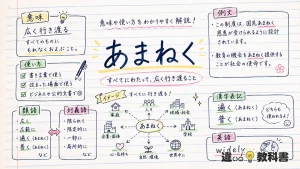 意味や使い方をわかりやすく解説!
意味
広く行き渡る
すべてのものに、
もれなくおよぶこと。
あまねく
すべてにわたって、広く行き渡ること
例文
・この制度は、国民あまねく
恩恵が受けられるように設計
されています。
・教育の機会をあまねく提供する
ことが社会の使命です。
使い方
書き言葉で使う
改まった場面で使う
類語
広く
広範に
すべて
など
対義語
限られて
限定的に
一部に
など
イメージ
すべてに行き渡る!
あまねく
地域・社会
学校
世界中に
自然・環境
漢字表記
遍く(あまねく)
普く(あまねく)
どちらも
使われるよ!
英語
widely
教科書